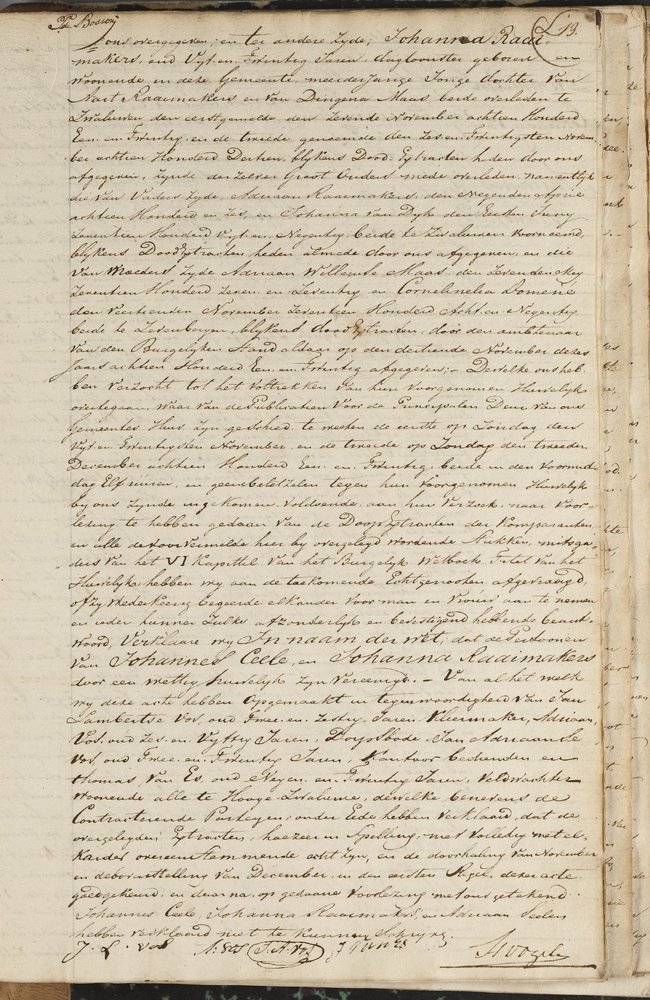 13.
ons overgegeven; en ter andere zyde; Johanna Raai-
makers, oud Vyf. en. Twintig Jaren, dagloonster geboren en
woonende in deze Gemeente, meerderjarige Jonge dochter van
Aart Raaimakers en van Dingena Maas beide overleden te
Zwaluwen den eerstgemelde den Zevende November achtien Honderd
Een. en. Twintig. en de tweede genoemde den Zes en Twintigsten Novem-
ber achtien Honderd Dertien, blykens Dood. Extracten heden door ons
afgegeven, Zynde derzelver Groot Ouders mede overleden, namentlyk
die van Vaders Zyde, Adriaan Raaimakers, den Negenden April
achtien Honderd en Zes, en Johanna van Dyk den Eersten Juny
Zeventien Honderd Vyf. en Negentig, beide te Zwaluwen voornoemd,
blykens Doodextracten heden almede door ons afgegeven, en die
van Moeders Zyde Adriaan Willemse Maas, den Zevenden Mey
Zeventien Honderd Zeven. en Zeventig en Cornelinelia Domene
den Veertienden November Zeventien Honderd Acht. en Negentig
beide te Zevenbergen, blykens dood Extracten, door den ambtenaar
van den Burgelyken Stand aldaar op den dertiende November dezes
Jaars achtien Honderd Een. en. Twintig afgegeven; Dewelke ons heb-
ben Verzocht tot het voltrekken van hun Voorgenomen Huwelyk
overtegaan, waar van de Publicatien Voor de Principalen Deur van ons
Gemeentes Huis, zyn geschied, te weten de eerste op Zondag den
Vyf. en. Twintigsten November en de tweede op Zondag den tweeden
December achtien Honderd Een. en. Twintig, beide in den voormid-
dag Elf uuren, en geene beletzelen tegen hun Voorgenomen Huwelyk
by ons Zynde ingekomen. Voldoende aan hun Verzoek, naar Voor-
lezing te hebben gedaan van de Doop Extracten der komparanten
en alle de hier by overgelegd wordende Stukken, mitsga-
ders van het VI Kapittel van het Burgelyk Wetboek Titel van het
Huwelyk, hebben wy aan de toekomende Echtgenooten afgevraagd,
of zy Wederkeerig begeerde elkander voor man en Vrouw aan te nemen
en ieder hunner zulks afzonderlyk en bevestigend hebbende beant-
woord, Verklaare wy In naam der wet, dat de Persoonen
van Johannes Ceele, en Johanna Raaimakers
door een wettig huwelyk zyn Vereenigd. – Van al het welk
wy deze acte hebben Opgemaakt in tegenwoordigheid van Jan
Lambertse Vos, oud Twee. en. Zestig Jaren Kleermaker, Adriaan
Vos, oud Zes. en. Vyftig Jaren, Jan Adriaanse
Vos, oud Twee. en. Twintig Jaren, Kantoor bedienden en
thomas van Es, oud Negen. en. Twintig Jaren, Veldwachter
Woonende alle te Hooge Zwaluwe, dewelke benevens de
Contracteerende Partyen, onder Eede hebben verklaard, dat de
overgelegden Extracten, hoezeer in Spelling, niet volledig met el-
kander overeenstemmende echt zyn, en de doorhaling van November
en van December, in den eersten Regel, dezer acte
goedgekeurd, en daarna, op gedaane Voorlezing met ons getekend.
Johannis Ceele, Johanna Raaimakers, en Adriaan
hebben verklaard niet te kunnen Schryve.
J. L. Vos A: Vos J. A. Vos T van Es